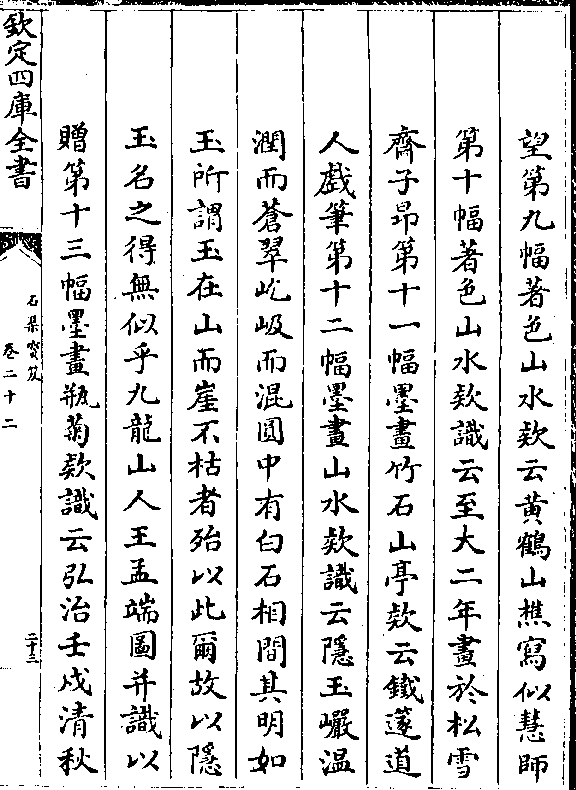 望第九幅著色山水欵云黄鶴山樵寫似慧師
第十幅著色山水欵識云至大二年畫於松雪
齋子昂第十一幅墨畫竹石山亭欵云鐵篴道
人戲筆第十二幅墨畫山水欵識云隱玉巖温
潤而蒼翠屹岌而混圓中有白石相間其明如
玉所謂玉在山而崖不枯者殆以此爾故以隱
玉名之得無似乎九龍山人王孟端圖并識以
贈第十三幅墨畫瓶菊欵識云弘治壬戌清秋
欽定四庫全書
石渠寳笈
卷二十二
二十三